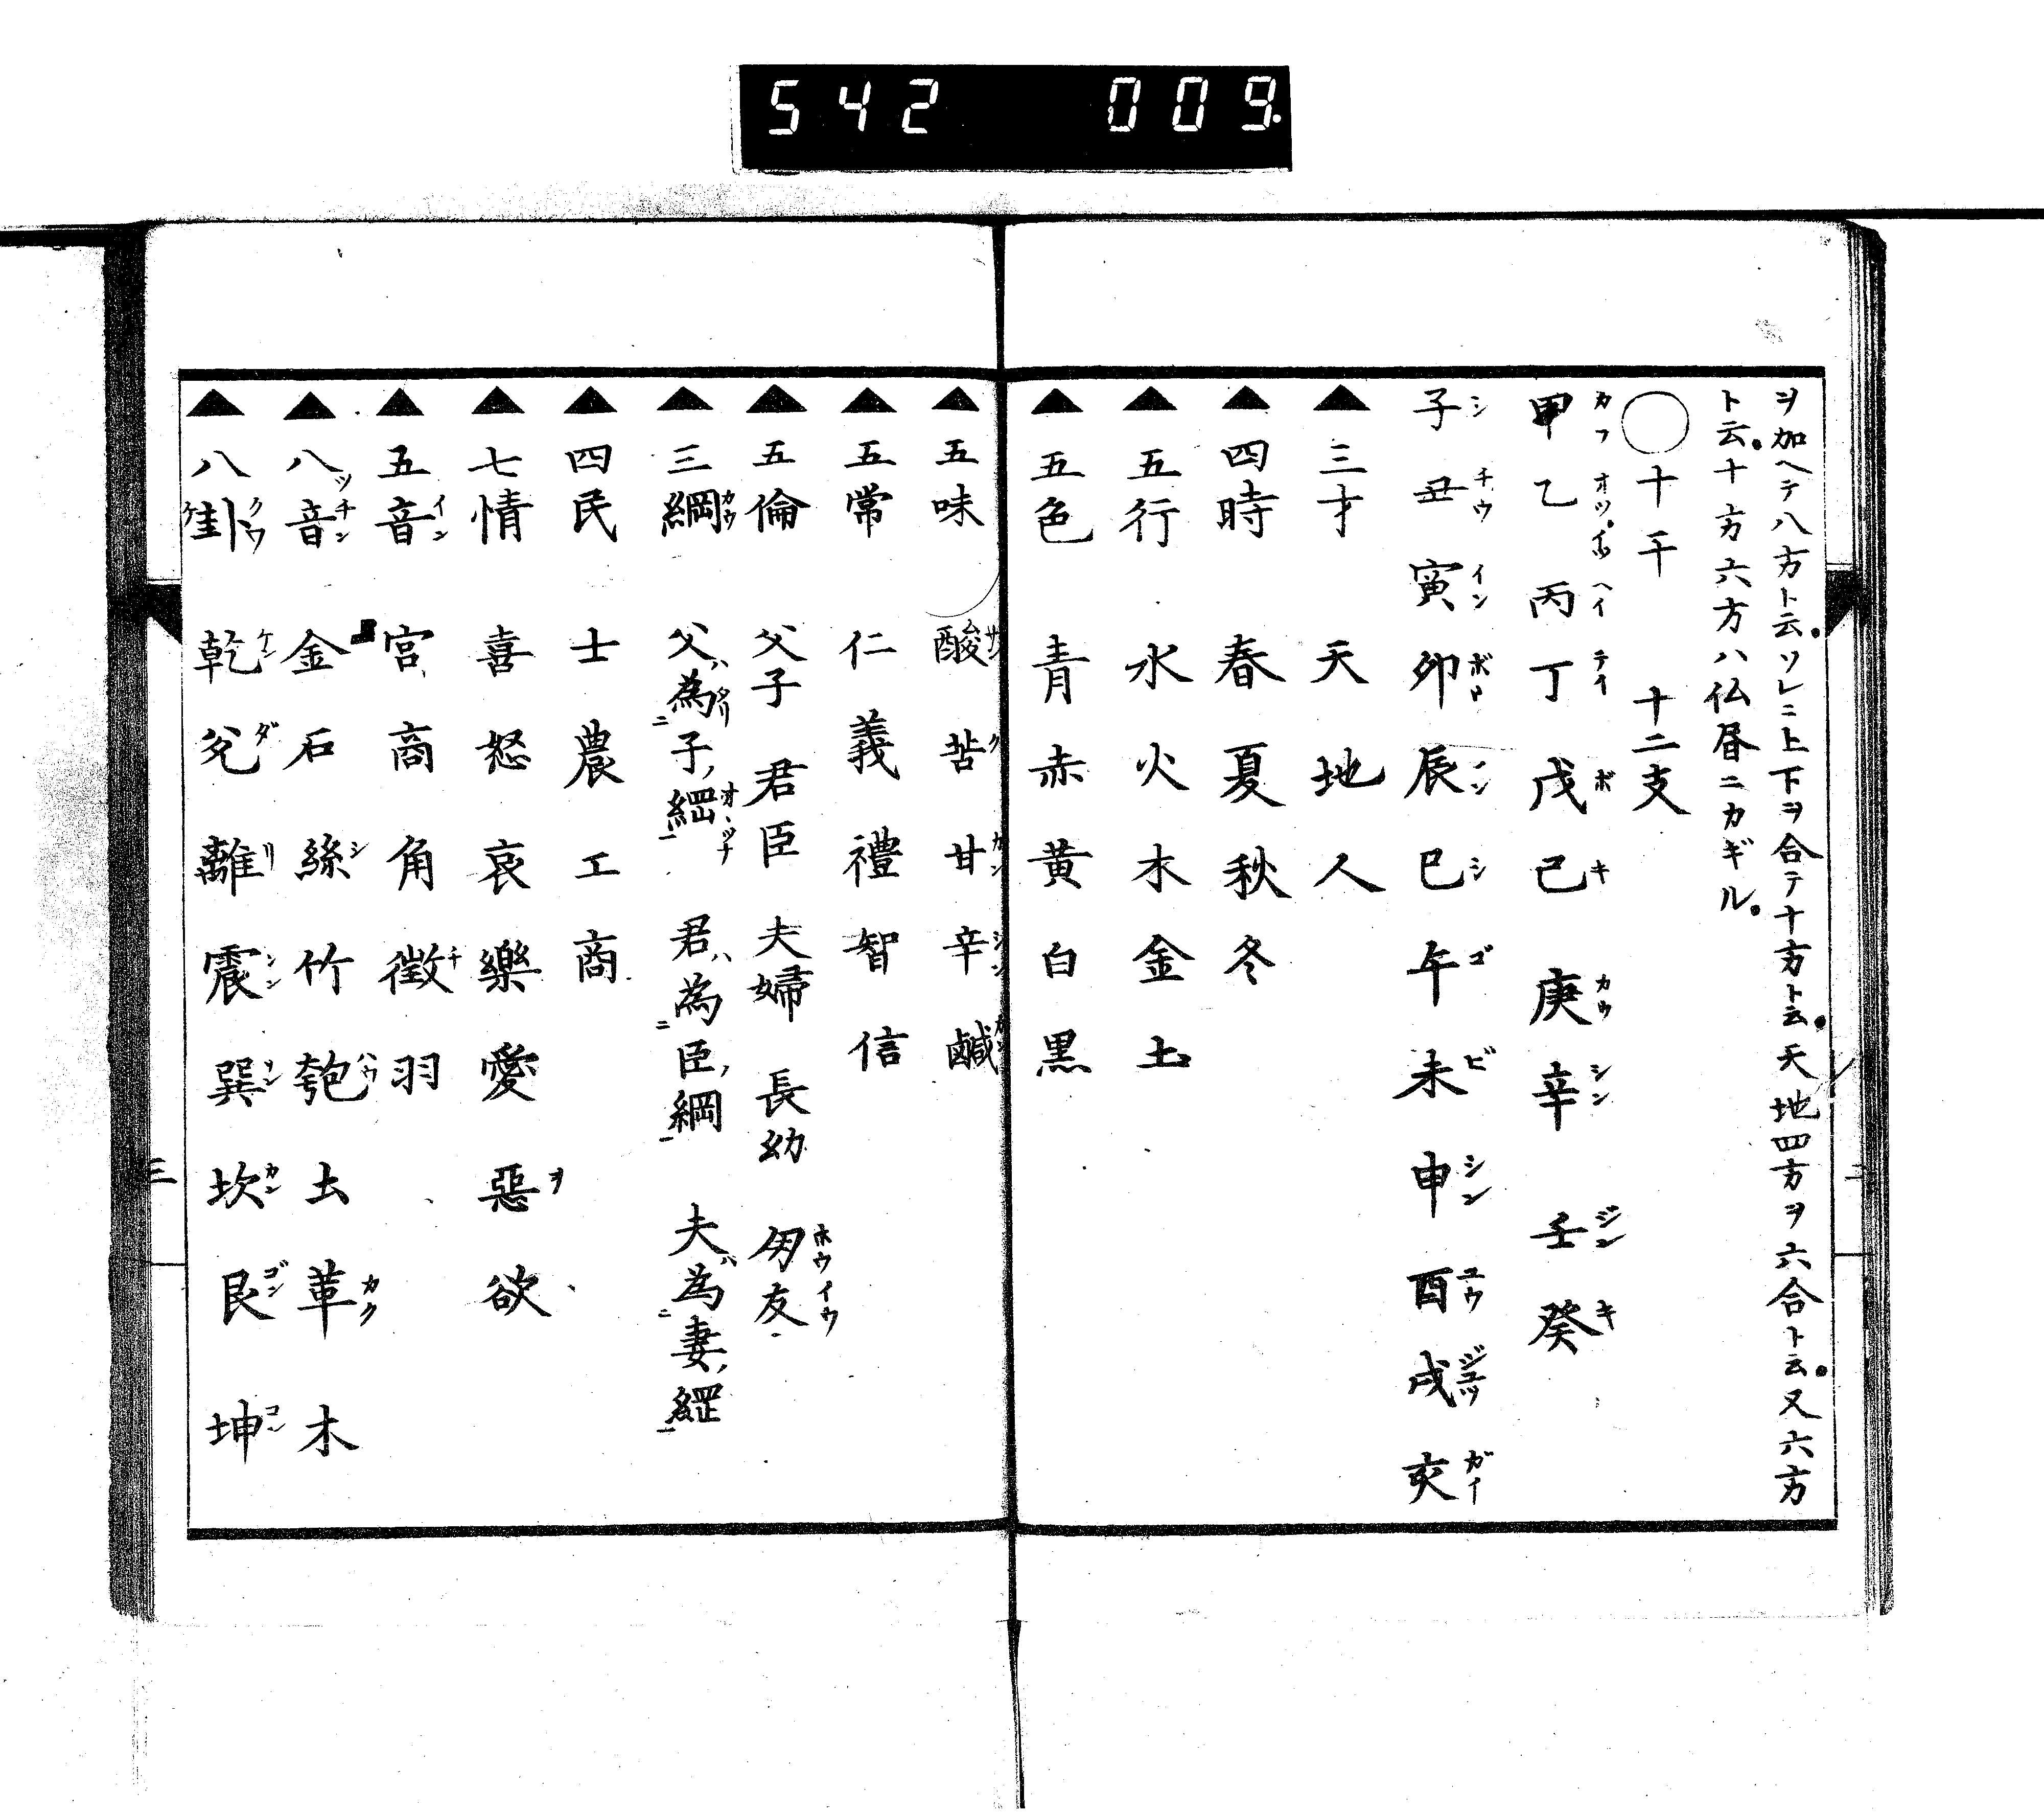 542 009.
ヲ加ヘテ八方ト云。ソレニ上下ヲ合テ十方ト云。天地四方ヲ六合ト云。又六方
ト云。十方六方ハ仏昏ニカギル。
○十干 十二支
甲乙丙丁戊己庚辛壬癸
子丑寅卯辰巳午未申酉戌亥
▲三才 天地人
▲四時 春夏秋冬
▲五行 水火木金土
▲五色 青赤黄白黒
▲五味 酸苦甘辛鹹
▲五常 仁義禮智信
▲五倫 父子 君臣 夫婦 長幼 朋友
▲三綱 父ハ為子ノ綱 君ハ為臣ノ綱 夫ハ為妻ノ綱
▲四民 士農工商
▲七情 喜怒哀樂愛惡欲
▲五音 宮商角徵羽
▲八音 金石絲竹匏土革木
▲八卦 乾兌離震巽坎艮坤
三